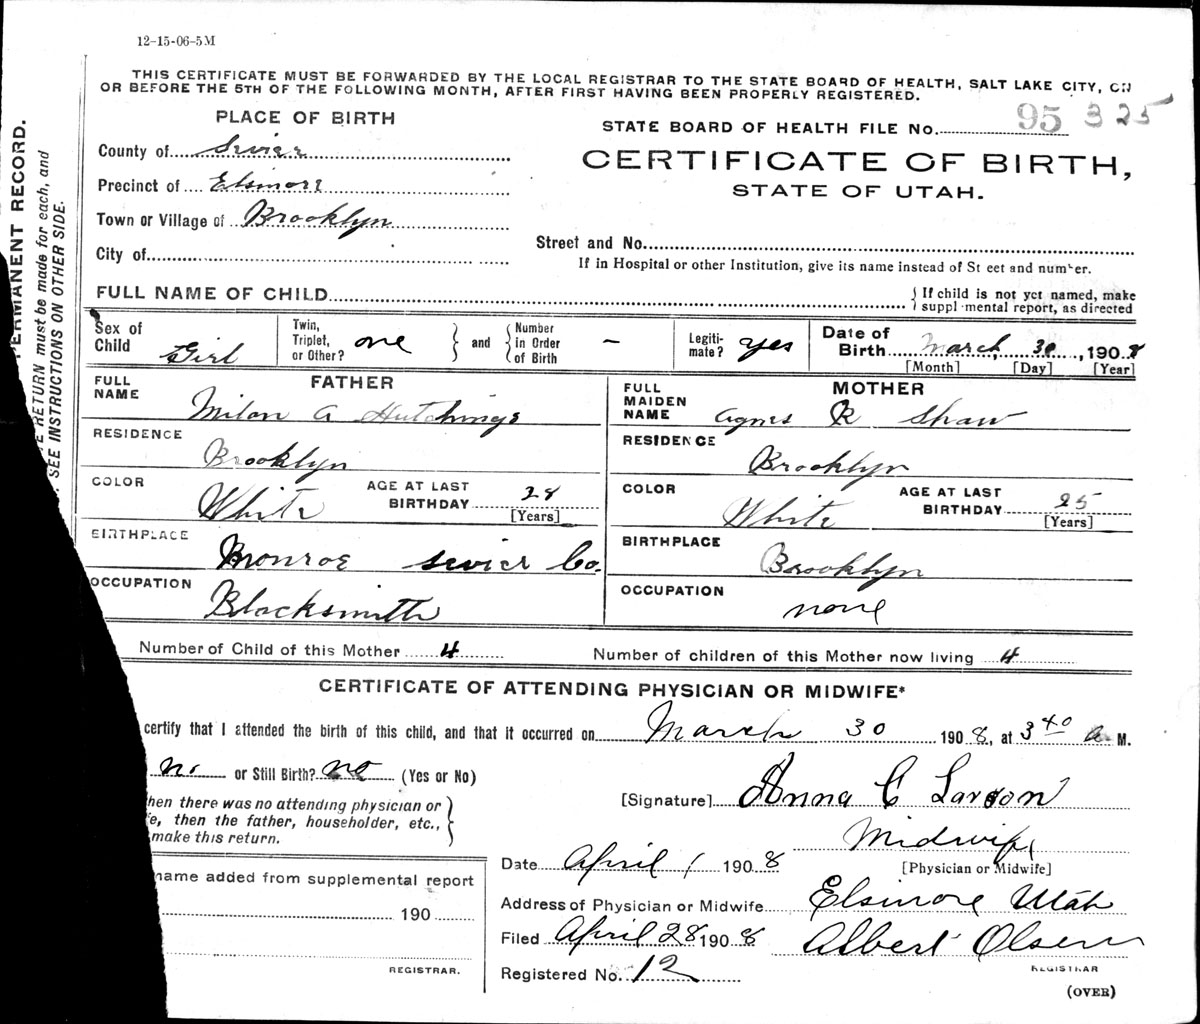 12-15-06-5M
THIS CERTIFICATE MUST BE FORWARDED BY THE LOCAL REGISTRAR TO THE STATE BOARD OF HEALTH, SALT LAKE CITY, ON
OR BEFORE THE 5TH OF THE FOLLOWING MONTH, AFTER FIRST HAVING BEEN PROPERLY REGISTERED.
PERMANENT RECORD.
RETURN must be made for each, and
SEE INSTRUCTIONS ON OTHER SIDE.
PLACE OF BIRTH
County of Sevier
Precinct of Elsinore
Town or Village of Brooklyn
City of
STATE BOARD OF HEALTH FILE No. 95 325
CERTIFICATE OF BIRTH,
STATE OF UTAH.
Street and No.
If in Hospital or other Institution, give its name instead of St eet and number.
FULL NAME OF CHILD
If child is not yet named, make
suppl mental report, as directed
Sex of Child Girl
Twin, Triplet, or Other? one
and Number in Order of Birth –
Legiti-mate? yes
Date of Birth March 30, 1908
[Month] [Day] [Year]
FATHER
FULL NAME Milon A Hutchings
RESIDENCE Brooklyn
COLOR White AGE AT LAST BIRTHDAY 28 [Years]
BIRTHPLACE Monroe Sevier Co.
OCCUPATION Blacksmith
MOTHER
FULL MAIDEN NAME Agnes R Shaw
RESIDENCE Brooklyn
COLOR White AGE AT LAST BIRTHDAY 25 [Years]
BIRTHPLACE Brooklyn
OCCUPATION none
Number of Child of this Mother 4
Number of children of this Mother now living 4
CERTIFICATE OF ATTENDING PHYSICIAN OR MIDWIFE*
certify that I attended the birth of this child, and that it occurred on March 30 1908, at 3 40 a M.
no or Still Birth? no (Yes or No)
hen there was no attending physician or
e, then the father, householder, etc.,
make this return.
[Signature] Anna C Larson
Midwife
[Physician or Midwife]
Date April 1 1908
name added from supplemental report
190
REGISTRAR.
Address of Physician or Midwife Elsinore Utah
Filed April 28 1908 Albert Olsen
REGISTRAR
Registered No. 12
(OVER)